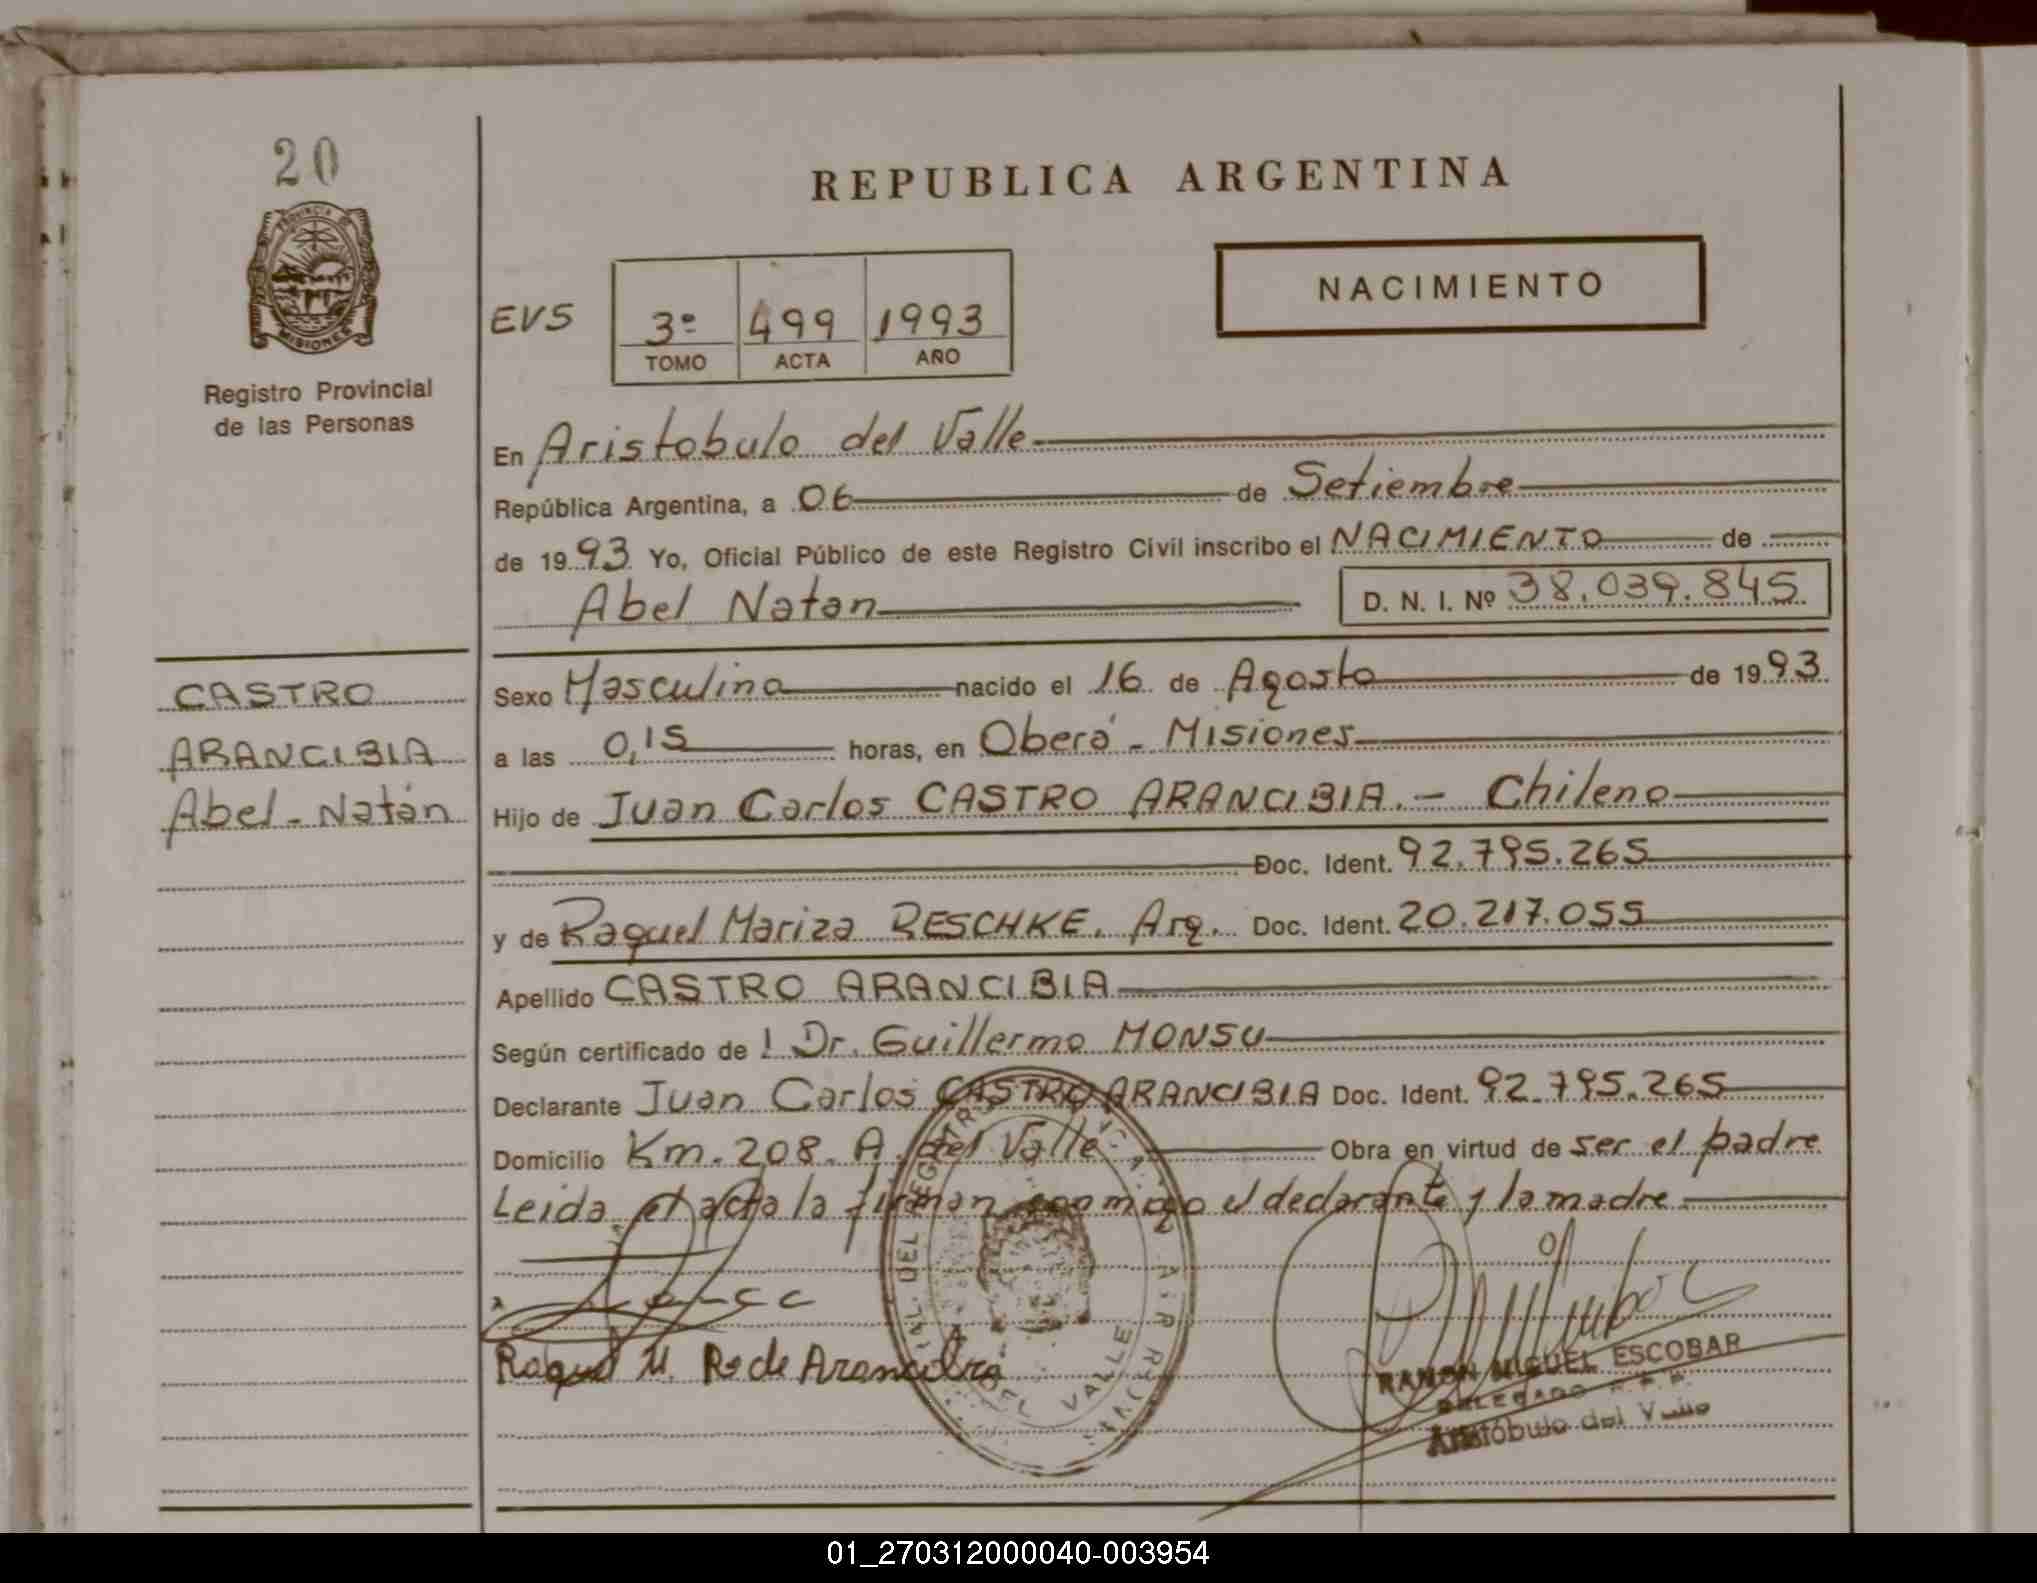 20
PROVINCIA DE
MISIONES
Registro Provincial
de las Personas
CASTRO
ARANCIBIA
Abel - Natán
REPUBLICA ARGENTINA
EVS
3º 499 1993
TOMO ACTA AÑO
NACIMIENTO
En Aristobulo del Valle
República Argentina, a 06 de Setiembre
de 1993 Yo, Oficial Público de este Registro Civil inscribo el NACIMIENTO de
Abel Natan D. N. I. Nº 38.039.845
Sexo Masculino nacido el 16 de Agosto de 1993
a las 0,15 horas, en Oberá - Misiones
Hijo de Juan Carlos CASTRO ARANCIBIA. - Chileno
Doc. Ident. 92.795.265
y de Raquel Mariza RESCHKE. Arg. Doc. Ident. 20.217.055
Apellido CASTRO ARANCIBIA
Según certificado de ! Dr. Guillermo MONSU
Declarante Juan Carlos CASTRO ARANCIBIA Doc. Ident. 92.795.265
Domicilio Km. 208. A. del Valle. Obra en virtud de ser el padre
Leida el acta la firman conmigo el declarante y la madre
Raquel M. R. de Arancibia
DEL VALLE
RAMON MIGUEL ESCOBAR
DELEGADO R. P. P.
Aristóbulo del Valle
01_270312000040-003954